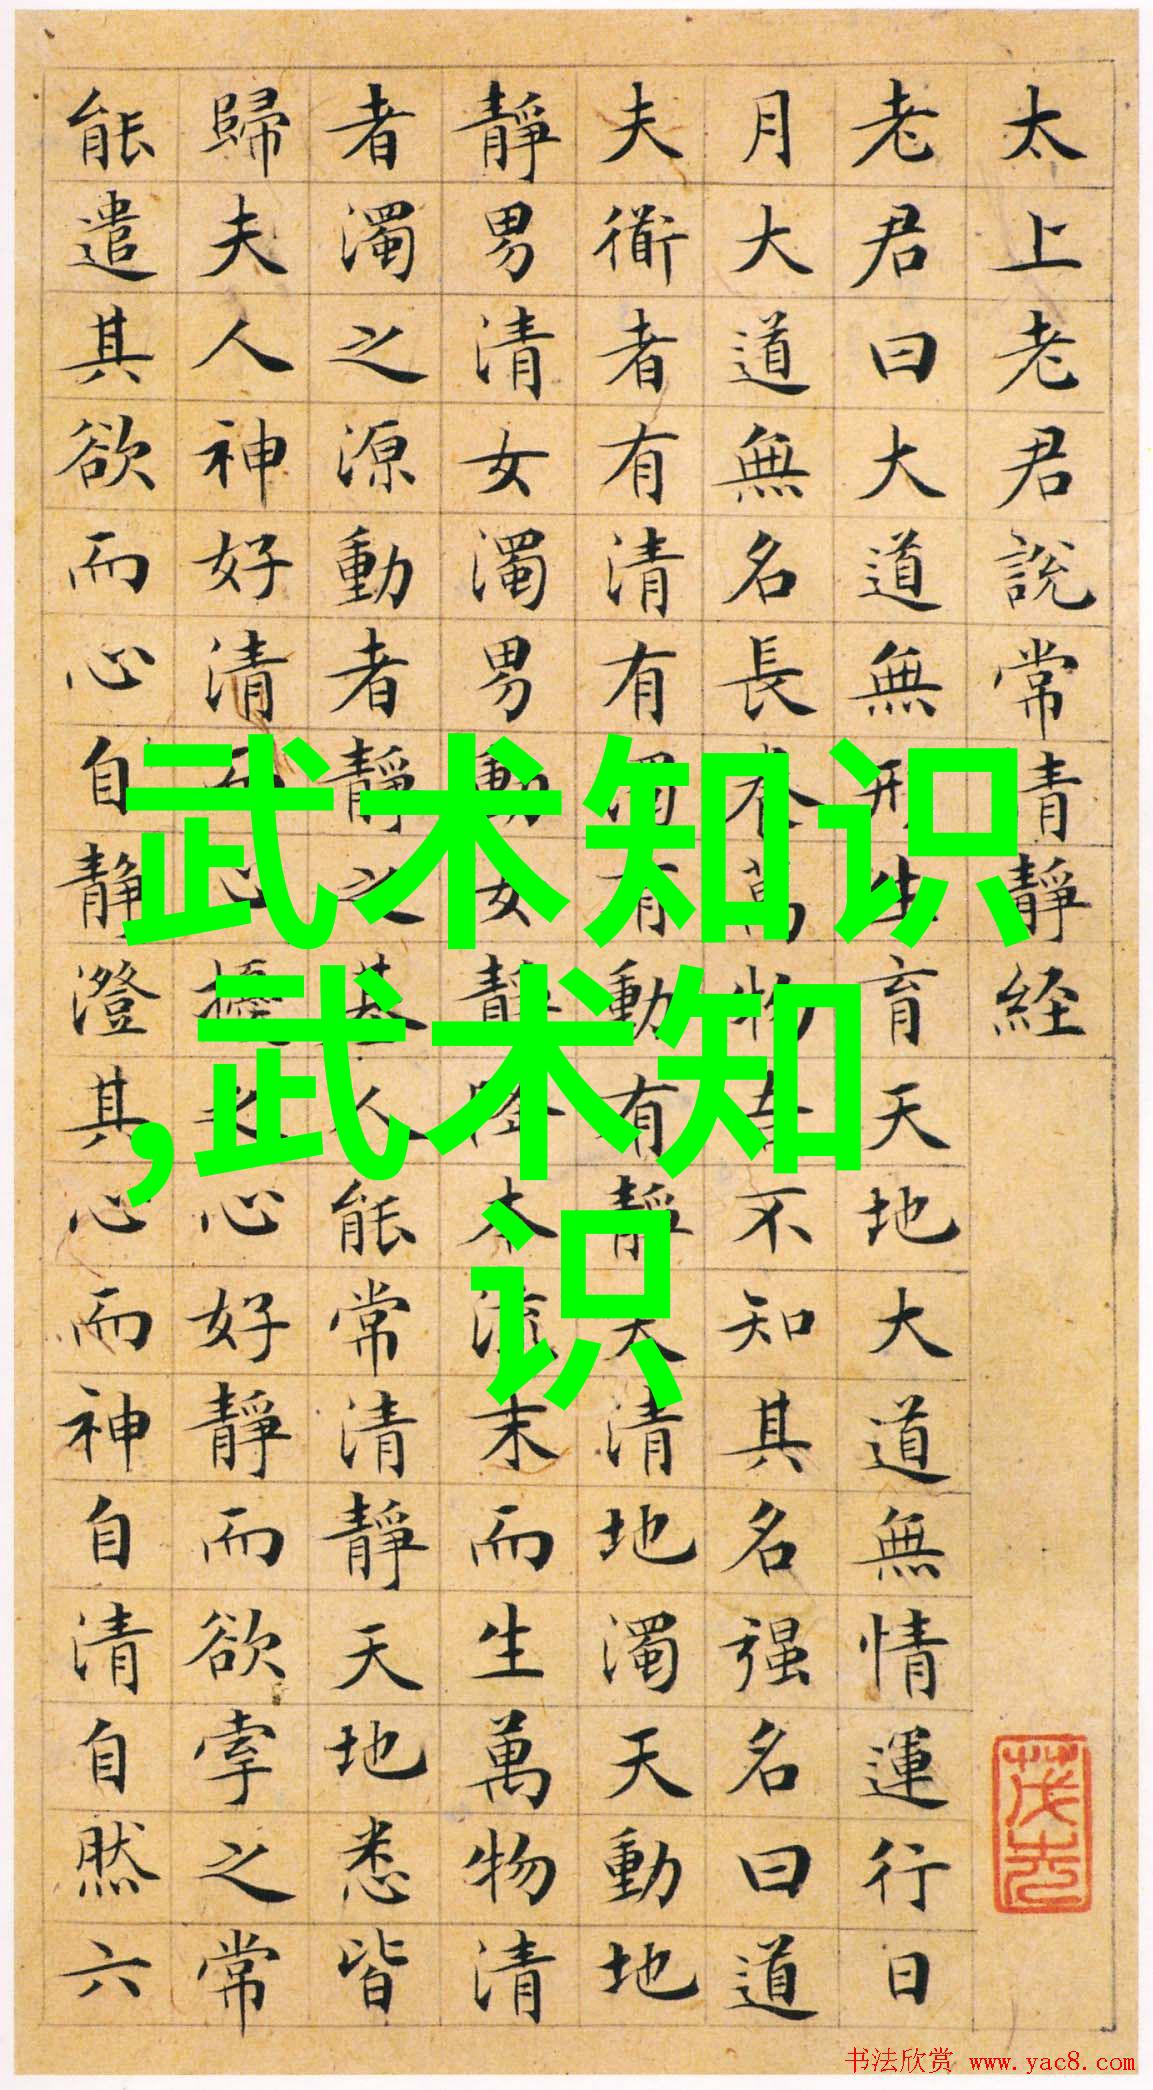 太上老君說常清靜経
老君曰大道無形生育天地大道無情運行日
月大道無名長養萬物吾不知其名强名曰道
夫衜者有清有濁有動有靜天清地濁天動地
靜男清女濁男動女靜降本流末而生萬物清
者濁之源動者靜之基人能常清靜天地悉皆
歸夫人神好清而心擾之心好靜而欲牽之常
能遣其欲而心自静澄其心而神自清自然六
武术知识
,武术知
识
书法欣赏 www.yac8.com